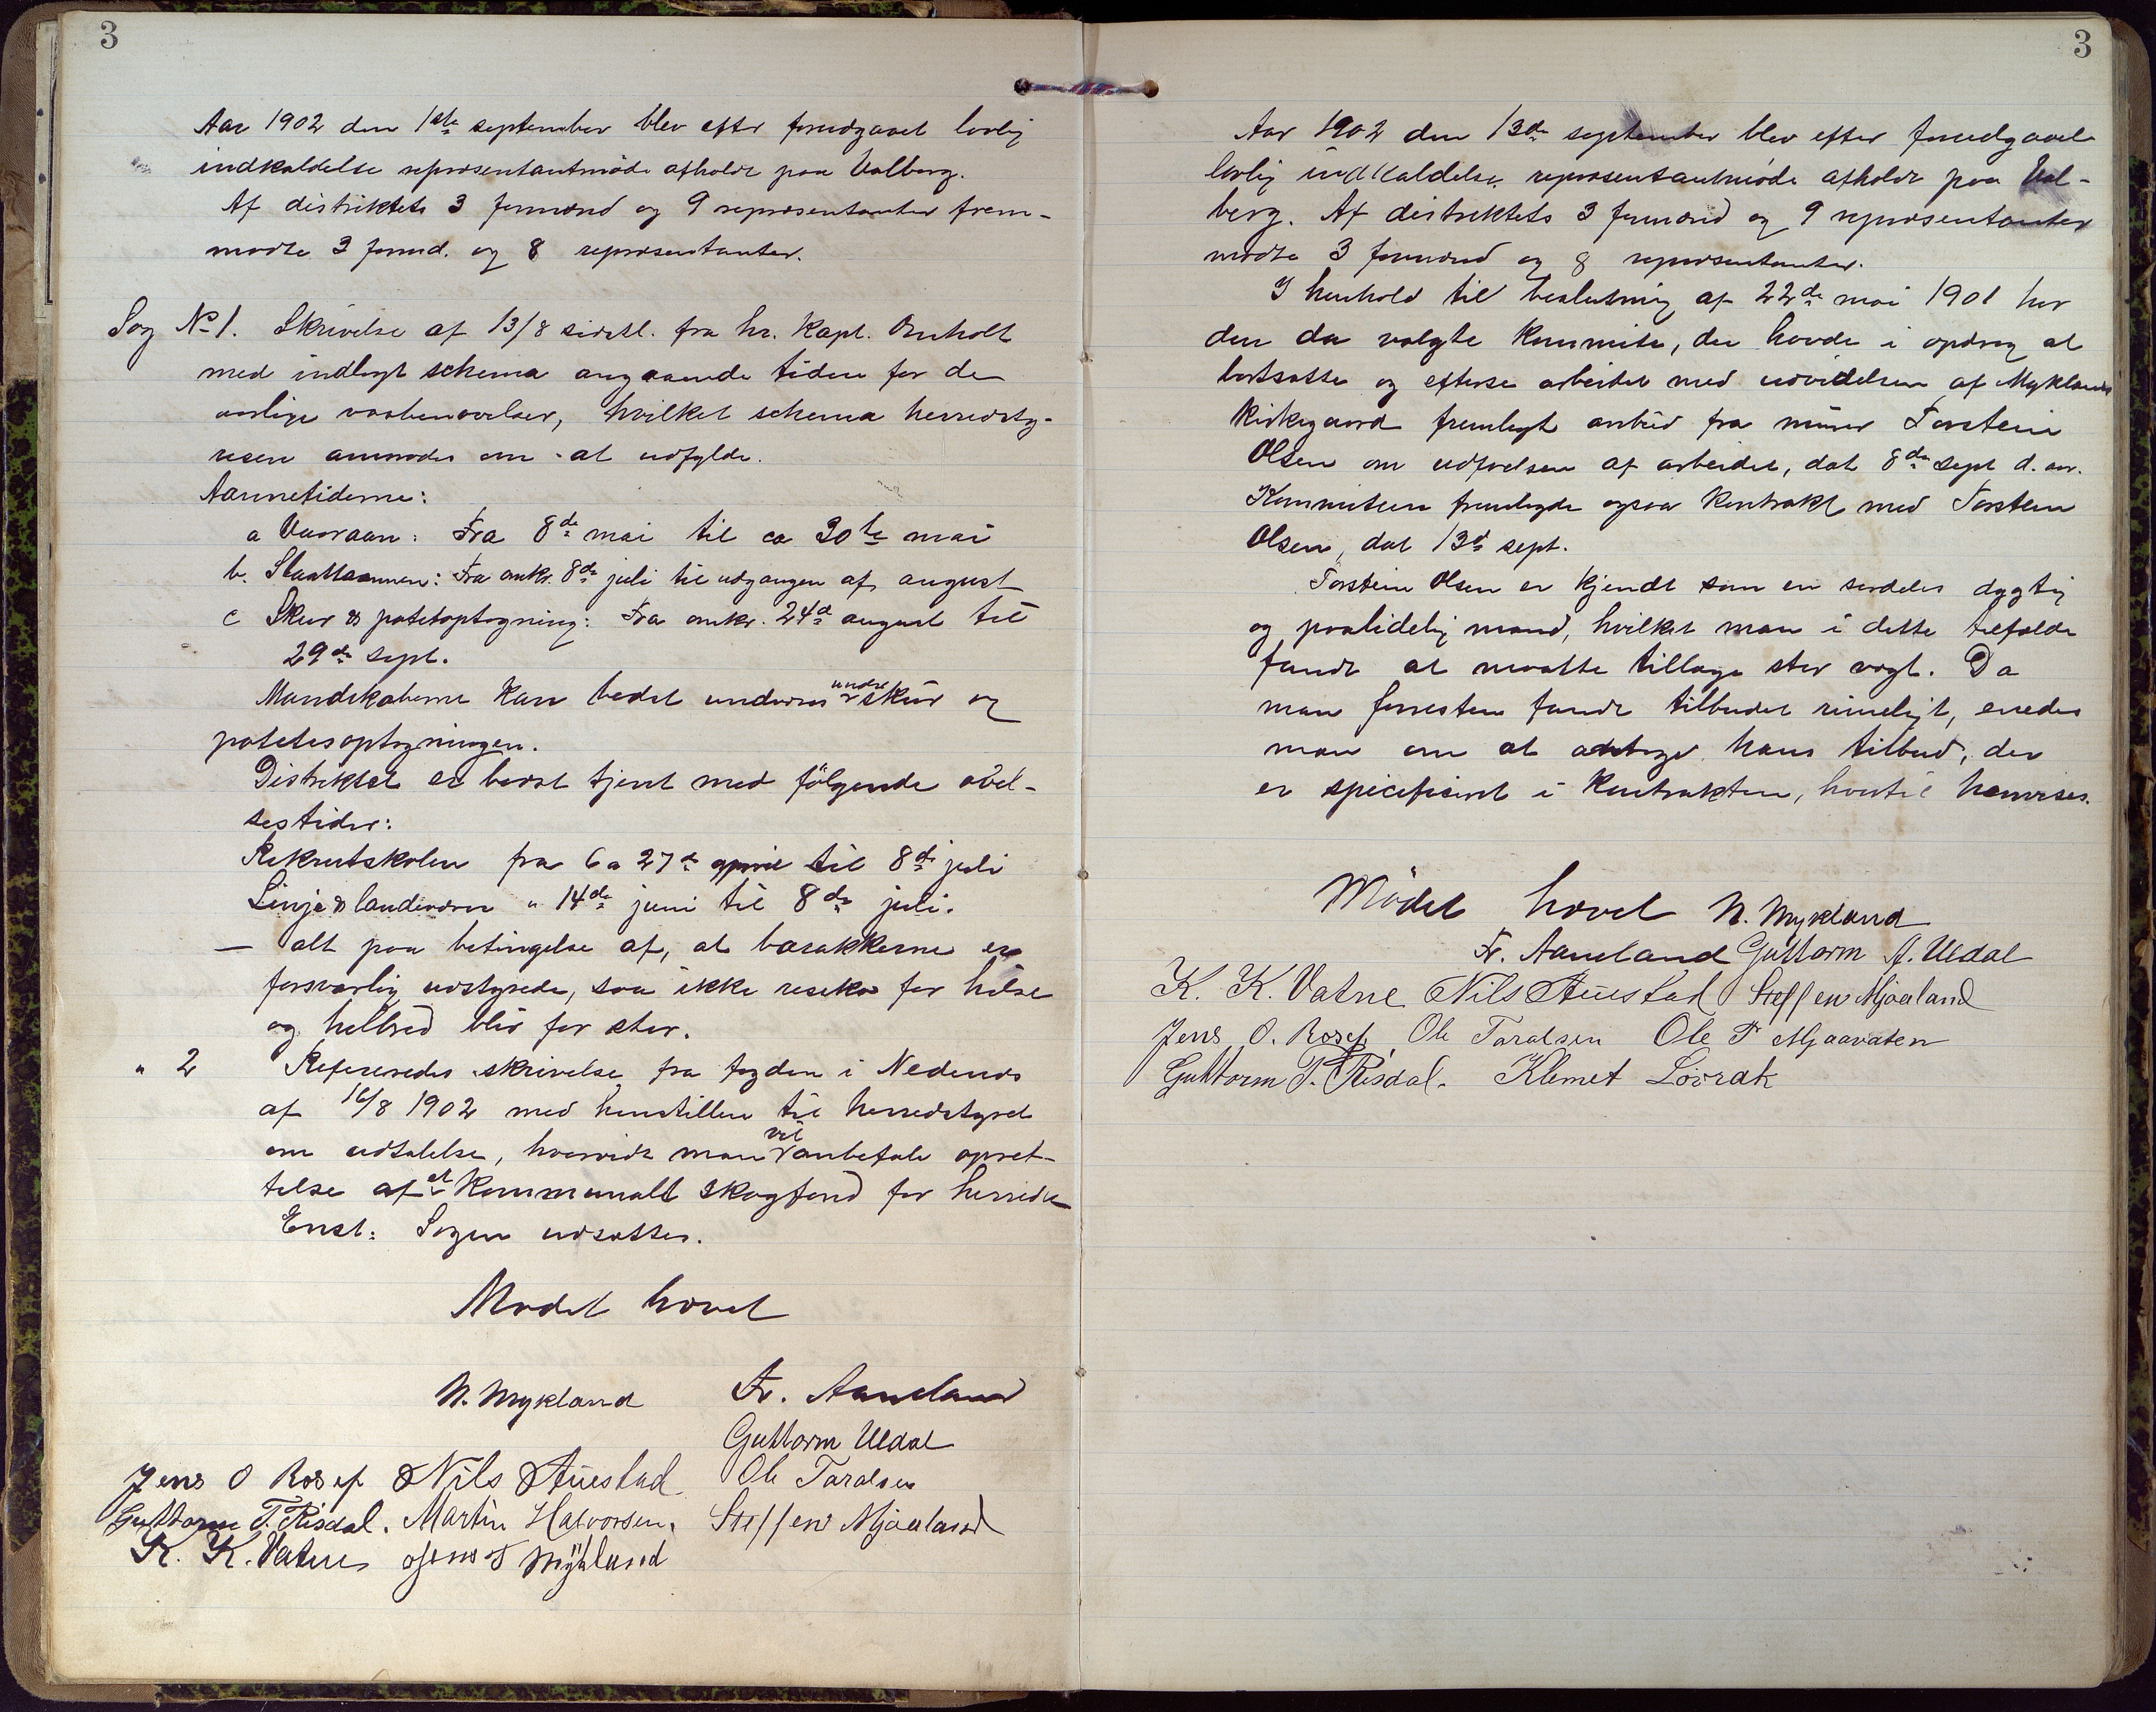 3
Aar 1902 den 1ste september blev efter forudgaaet lovlig
indkaldelse repræsentantmöde afholdt paa Valberg.
Af distriktets 3 formænd og 9 repræsentanter frem-
mødte 3 formd. og 8 repræsentanter.
Sag No 1. Skrivelse af 13/8 sidstl. fra hr. Kapt. Omholt
med indlagt schema angaaende tiden for de
aarlige vaabenøvelser, hvilket schema herredsty-
resen anmodes om at udfylde.
Aannetiderne:
a Vaaraan: Fra 8de mai til ca 30te mai
b. Slaattaannen: Fra omkr. 8de juli til udgangen af august
c Skur & potetoptagning: Fra omkr. 24de august til
29de sept.
Mandskaberne kan bedst undværes under skur og
potetesoptagningen.
Distriktet er bedst tjent med følgende øvel-
sestider:
Rekrutskolen fra 6 a 27de april til 8de juli
Linje & landeværn " 14de juni til 8de juli.
— alt paa betingelse af, at barakkerne er
forsvarlig udstyrede, saa ikke reseko for helse
og helbred blir for stor.
" 2 Refereredes skrivelse fra fogden i Nedenes
af 16/8 1902 med henstillen til herredstyret
om udtalelse, hvorvidt man vil anbefale opret-
telse af et kommunalt skogfond for herredet
Enst: Sagen udsættes.
Mødet hævet
N. Mykland Fr. Aaneland
Guttorm Uldal
Jens O Rosef Nils Auestad Ole Taralsen
Guttorm T. Risdal. Martin Halvorsen. Steffen Mjaaland
K. K. Vatne Jens T Mykland
3
Aar 1902 den 13de september blev efter forudgaaet
lovlig indkaldelse repræsentantmøde afholdt paa Val-
berg. Af distriktets 3 formænd og 9 repræsentanter
mødte 3 formænd og 8 repræsentanter.
I henhold til beslutning af 22de mai 1901 har
den da valgte Kommite, der havde i opdrag at
bortsætte og efterse arbeidet med udvidelsen af Myklands
Kirkegaard fremlagt anbud fra murer Torstein
Olsen om udførelsen af arbeidet, dat 8de sept d. aar.
Kommiteen fremlagde ogsaa Kontrakt med Torstein
Olsen, dat 13de sept.
Torstein Olsen er kjendt som en særdeles dygtig
og paalidelig mand, hvilket man i dette tilfælde
fandt at maatte tillægge stor vægt. Da
man forresten fandt tilbudet rimeligt, enedes
man om at antage hans tilbud, der
er specifiseret i Kontrakten, hvortil henvises.
Mødet hævet N. Mykland
Fr. Aaneland Guttorm A. Uldal
K. K. Vatne Nils Auestad Steffen Mjaaland
Jens O. Rosef Ole Taralsen Ole T Mjaavaten
Guttorm T. Risdal. Klemet Løvrak